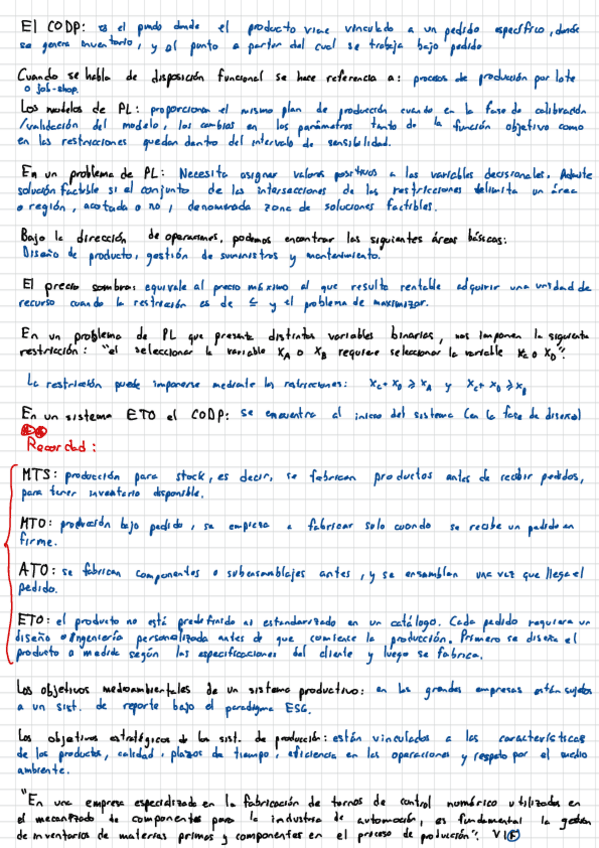 El CODP: es el punto donde el producto viene vinculado a un pedido específico, donde
se genera inventario, y el punto a partir del cual se trabaja bajo pedido
Cuando se habla de disposición funcional se hace referencia a: procesos de producción por lote
o job-shop.
Los modelos de PL: proporcionan el mismo plan de producción cuando en la fase de calibración
/validación del modelo, los cambios en los parámetros tanto de la función objetivo como
en las restricciones quedan dentro del intervalo de sensibilidad.
En un problema de PL: Necesita asignar valores positivos a las variables decisionales. Admite
solución factible si el conjunto de las intersecciones de las restricciones delimita un área
o región, acotada o no, denominada zona de soluciones factibles.
Bajo la dirección de operaciones, podemos encontrar las siguientes áreas básicas:
Diseño de producto, gestión de suministros y mantenimiento.
El precio sombra: equivale al precio máximo al que resulta rentable adquirir una unidad de
recurso cuando la restricción es de ≤ y el problema de maximizar.
En un problema de PL que presenta distintas variables binarias, nos imponen la siguiente
restricción: "el seleccionar la variable XA o XB requiere seleccionar la variable XC o XD".
La restricción puede imponerse mediante las restricciones: XC+XD ≥ XA y XC+XD ≥ XB
En un sistema ETO el CODP: se encuentra al inicio del sistema (en la fase de diseño)
Recordad:
MTS: producción para stock, es decir, se fabrican productos antes de recibir pedidos,
para tener inventario disponible.
MTO: producción bajo pedido, se empieza a fabricar solo cuando se recibe un pedido en
firme.
ATO: se fabrican componentes o subensamblajes antes, y se ensamblan una vez que llega el
pedido.
ETO: el producto no está predefinido ni estandarizado en un catálogo. Cada pedido requiere un
diseño e ingeniería personalizada antes de que comience la producción. Primero se diseña el
producto a medida según las especificaciones del cliente y luego se fabrica.
Los objetivos medioambientales de un sistema productivo: en las grandes empresas están sujetos
a un sist. de reporte bajo el paradigma ESG.
Los objetivos estratégicos de los sist. de producción: están vinculados a las características
de los productos, calidad, plazos de tiempo, eficiencia en las operaciones y respeto por el medio
ambiente.
"En una empresa especializada en la fabricación de tornos de control numérico utilizados en
el mecanizado de componentes para la industria de automoción, es fundamental la gestión
de inventarios de materias primas y componentes en el proceso de producción". V|F